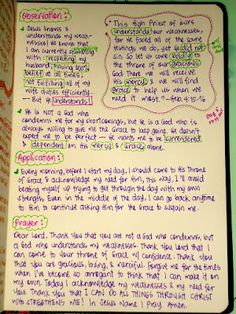 Observation:
Jesus knows &
understands my weak-
nesses! He knows that
I am currently struggling
with respecting my
husband, having self
belief at all times,
not fulfilling all of my
wife duties efficiently
- But He understands!
This High Priest of ours
understands our weaknesses,
for he faced all of the same
testings we do, yet he did not
sin. So let us come boldly to
the throne of our gracious
God. There we will receive
his mercy, & we will find
grace to help us when we
need it most. - Heb. 4:15-16
He is not a God who
condemns me for my shortcomings, but He is a God who is
always willing to give me the Grace to keep going. He doesn't
expect me to be perfect - He wants me to be surrendered
& dependent on His mercy & Grace alone.
Application:
Every morning, before I start my day, I should come to His throne
of Grace & acknowledge my need for him, this way, I'll avoid
beating myself up trying to get through the day with my own
strength. Even in the middle of the day, I can go back anytime
to Him to continue asking Him for the Grace to sustain me.
Prayer:
Dear Lord, Thank You that You are not a God who condemns, but
a God who understands my weaknesses. Thank You Lord that I
can come to Your throne of Grace, w/ confidence. Thank You
that You are gracious, loving, & merciful. Forgive me for the times
when I've become so arrogant to think that I can make it on
my own. Today I acknowledge my weaknesses & my need for
You. Thank You that I CAN DO ALL THINGS THROUGH CHRIST
WHO STRENGTHENS ME! In Jesus Name I Pray, Amen.